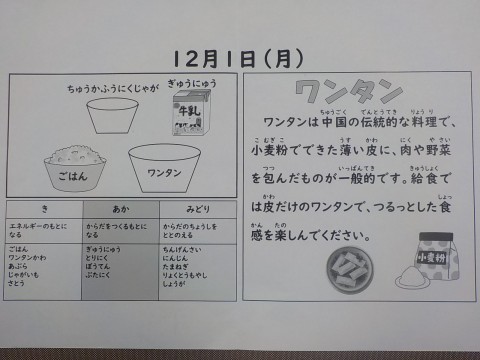 12月1日(月)
ちゅうかふうにくじゃが
ぎゅうにゅう
牛乳
ごはん
ワンタン
き
あか
みどり
エネルギーのもとになる
からだをつくるもとになる
からだのちょうしをととのえる
ごはん
ワンタンかわ
あぶら
じゃがいも
さとう
ぎゅうにゅう
とりにく
ぽうてん
ぶたにく
ちんげんさい
にんじん
たまねぎ
りょくとうもやし
しょうが
ワンタン
ワンタンは中国の伝統的な料理で、
小麦粉でできた薄い皮に、肉や野菜
を包んだものが一般的です。給食で
は皮だけのワンタンで、つるっとした食
感を楽しんでください。
小麦粉